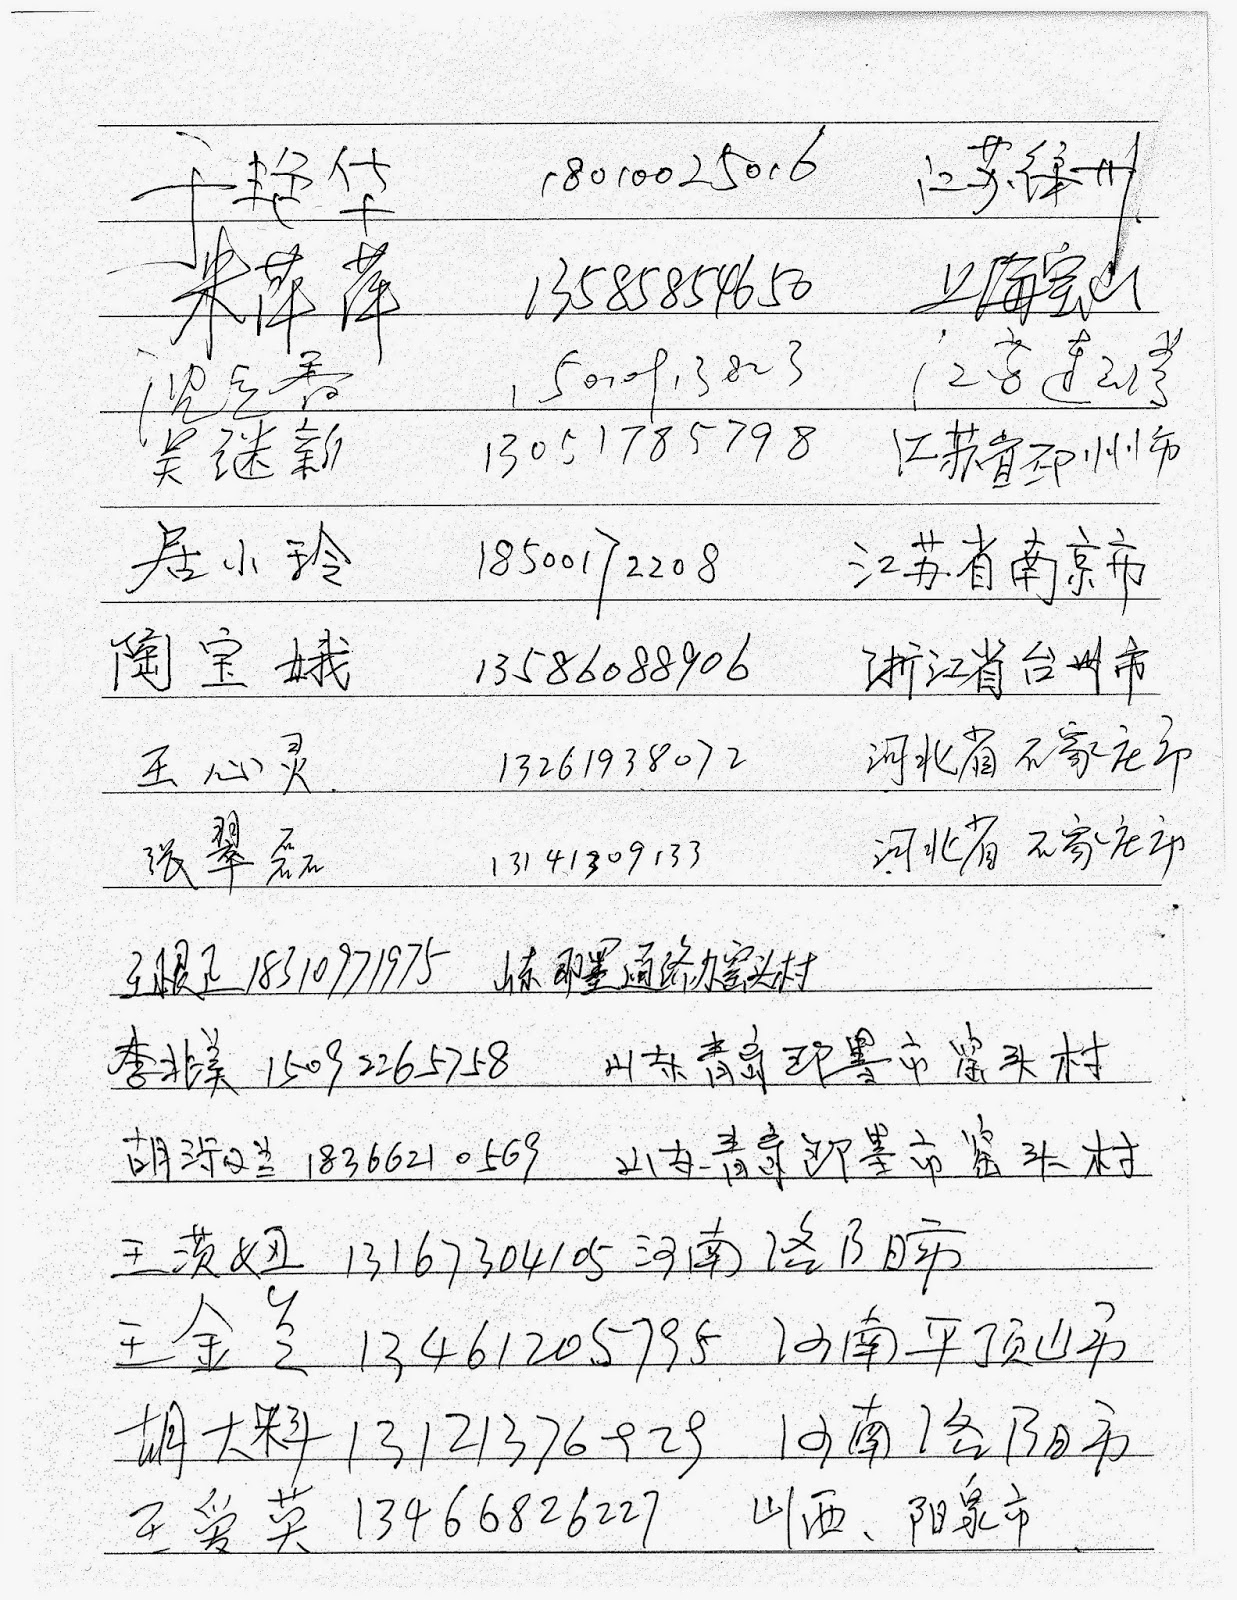 于艳华 18010025016 江苏徐州
朱萍萍 13585854650 上海宝山
沈立香 江苏连云港
吴继新 13051785798 江苏省邳州市
居小玲 18500172208 江苏省南京市
陶宝娥 13586088906 浙江省台州市
王心灵 13261938072 河北省石家庄市
张翠磊 13141309133 河北省石家庄市
18310971975 山东即墨通济办窑头村
李兆美 15092265758 山东青岛即墨市窑头村
18366210569 山东青岛即墨市窑头村
王 妞 13167304105 河南洛阳市
王金兰 13461205795 河南平顶山市
胡大料 13121376929 河南洛阳市
王爱英 13466826227 山西、阳泉市